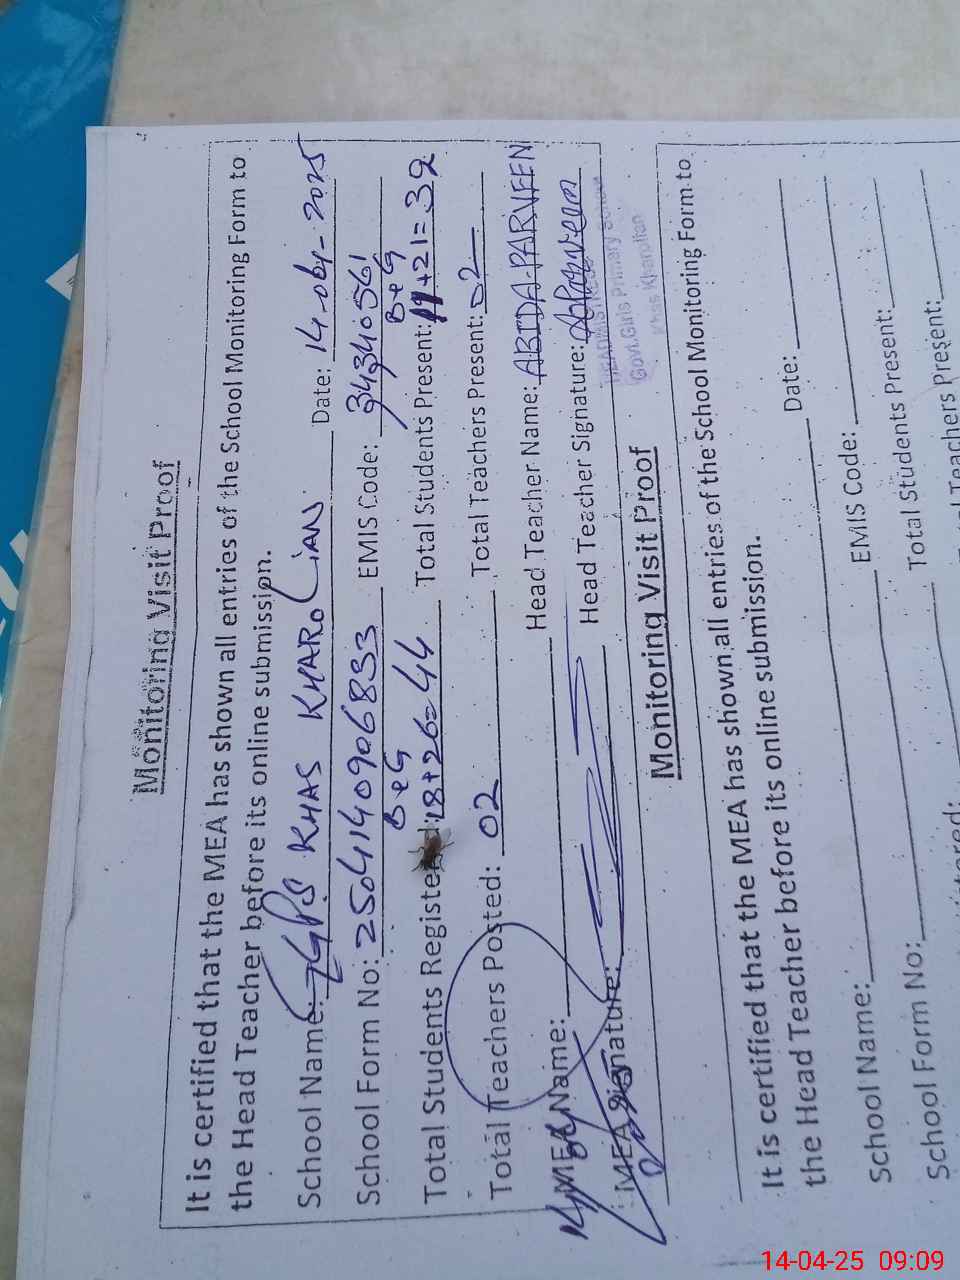 Monitoring Visit Proof
It is certified that the MEA has shown all entries of the School Monitoring Form to
the Head Teacher before its online submission.
School Name: GPS KHAS KHAROLIAN Date: 14-04-2025
School Form No: 2504140906833 EMIS Code: 34340561
B+G B+G
Total Students Registered: 18+26=44 Total Students Present: 11+21=32
Total Teachers Posted: 02 Total Teachers Present: 02
MEA Name: Head Teacher Name: ABIDA PARVEEN
MEA Signature: Head Teacher Signature: Abparveen
HEADMISTRESS
Govt.Girls Primary School
Khas Kharolian
Monitoring Visit Proof
It is certified that the MEA has shown all entries of the School Monitoring Form to
the Head Teacher before its online submission.
School Name: Date:
School Form No: EMIS Code:
Total Students Present:
Teachers Present:
14-04-25 09:09